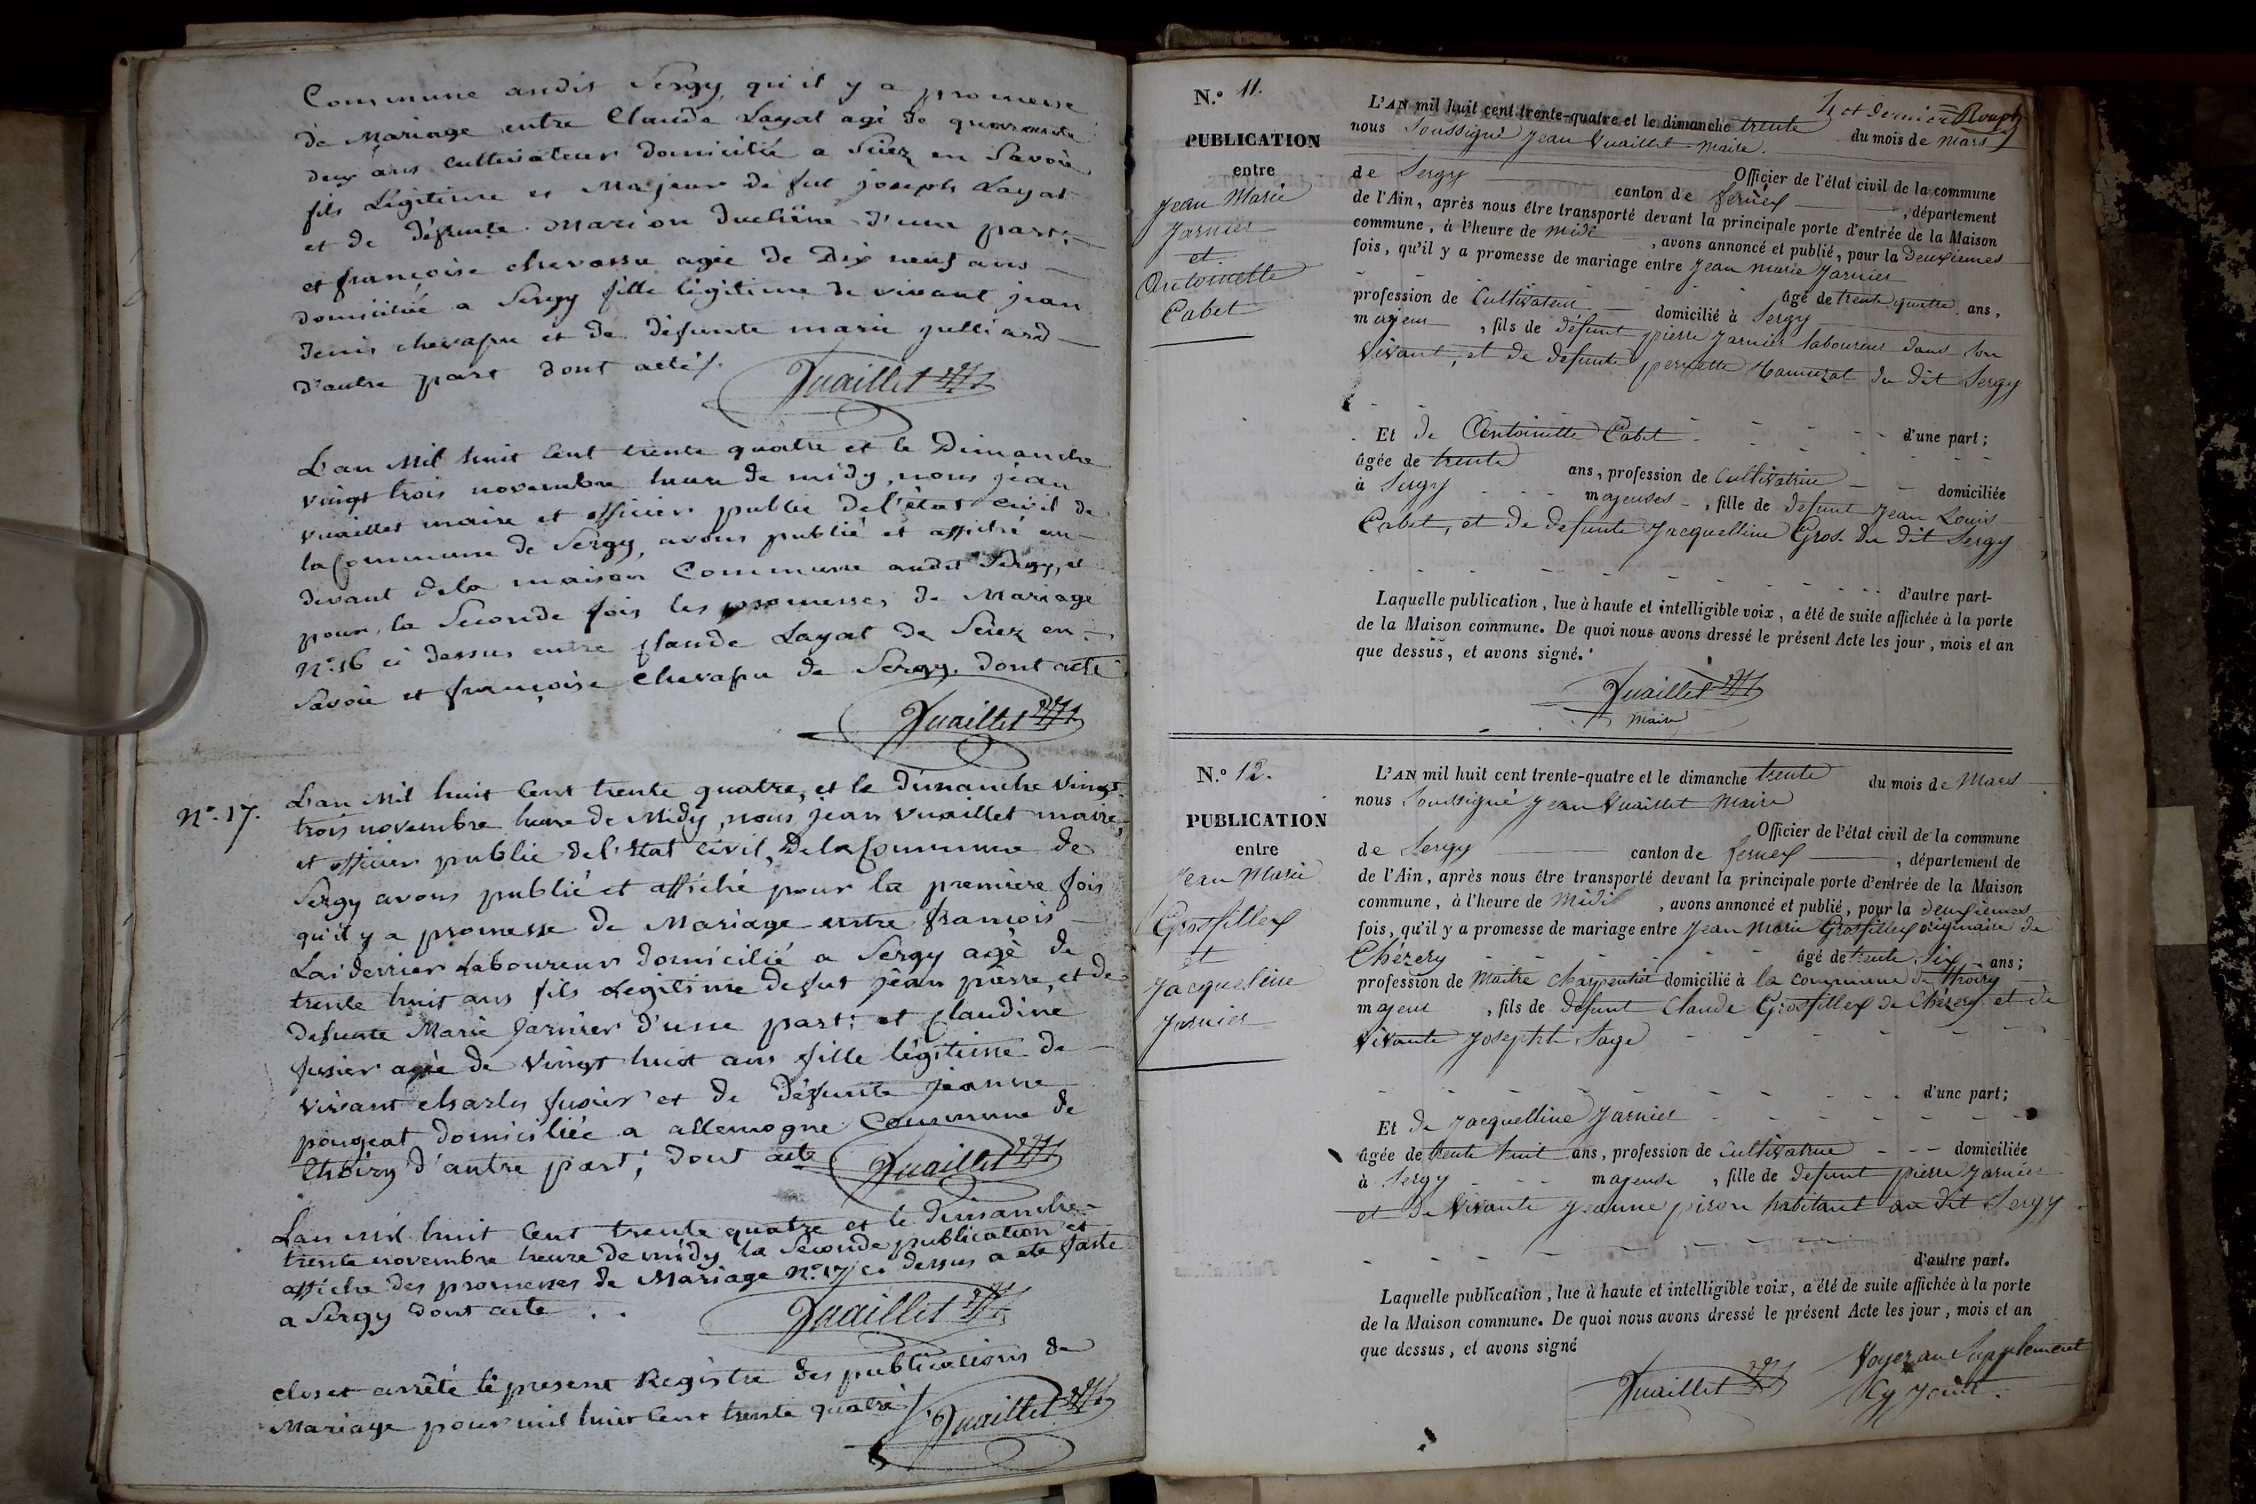 Commune audit Sergy, qu'il y a promesse
de Mariage entre Claude Layat agé de quarante
deux ans cultivateur domicilié a Sciez en Savoie
fils Légitime et Majeur de fut joseph Layat
et de défunte Marion Duchêne d'une part;
et françoise chevassu agée de Dix neuf ans
domiciliée a Sergy fille légitime de vivant jean
denis chevassu et de défunte marie julliard
d'autre part dont acte.
JVuaillet
L'an Mil huit Cent trente quatre et le Dimanche
vingt trois novembre heure de midy, nous jean
vuaillet maire et officier public de l'état Civil de
la Commune de Sergy, avons publié et affiché au
devant de la maison Commune audit Sergy, et
pour la Seconde fois les promesses de Mariage
N.º 16 ci dessus entre Claude Layat de Sciez en
Savoie et françoise Chevassu de Sergy. dont acte
JVuaillet
N.º 17.
L'an Mil huit Cent trente quatre, et le Dimanche Vingt
trois novembre heure de Midy, nous jean Vuaillet maire,
et officier public de l'état Civil, De la Commune de
Sergy avons publié et affiché pour la première fois
qu'il y a promesse de Mariage entre françois
Laiderrier Laboureur domicilié a Sergy agé de
trente huit ans fils Légitime de fut jean pierre, et de
defunte Marie Jarnier d'une part; et Claudine
fusier agée de Vingt huit ans fille légitime de
vivant charles fusier et de défunte jeanne
pougeat domiciliée a allemogne Commune de
Thoiry d'autre part; dont acte
JVuaillet
L'an Mil huit Cent trente quatre et le dimanche
trente novembre heure de midy la Seconde publication et
affiche des promesses de Mariage N.º 17 ci dessus a été faite
a Sergy dont acte
JVuaillet
Clos et arrêté le présent Registre des publications de
Mariage pour mil huit Cent trente quatre
JVuaillet
4 et dernier
N.º 11.
PUBLICATION
entre
Jean Marie
Jarnier
et
Antoinette
Cabet
L'AN mil huit cent trente-quatre et le dimanche trente du mois de Mars
nous Soussigné Jean Vuaillet Maire.
Officier de l'état civil de la commune
de Sergy canton de ferney , département
de l'Ain, après nous être transporté devant la principale porte d'entrée de la Maison
commune, à l'heure de midi , avons annoncé et publié, pour la deuxiemes
fois, qu'il y a promesse de mariage entre Jean Marie Jarnier
âgé de trente quatre ans,
profession de Cultivateur domicilié à Sergy
majeur , fils de défunt pierre Jarnier laboureur dans son
vivant, et de defunte pernette du dit Sergy
d'une part;
Et de Antoinette Cabet
âgée de trente ans, profession de Cultivatrice domiciliée
à Sergy majeures , fille de defunt Jean Louis
Cabet, et de defunte Jacquelline Gros du dit Sergy
d'autre part-
Laquelle publication, lue à haute et intelligible voix, a été de suite affichée à la porte
de la Maison commune. De quoi nous avons dressé le présent Acte les jour, mois et an
que dessus, et avons signé.
JVuaillet
Maire
N.º 12.
PUBLICATION
entre
Jean Marie
Grosfillex
et
Jacqueline
Jarnier
L'AN mil huit cent trente-quatre et le dimanche trente du mois de Mars
nous Soussigné Jean Vuaillet Maire
Officier de l'état civil de la commune
de Sergy canton de ferney , département de
de l'Ain, après nous être transporté devant la principale porte d'entrée de la Maison
commune, à l'heure de Midi , avons annoncé et publié, pour la deuxiemes
fois, qu'il y a promesse de mariage entre Jean Marie Grosfillex originaire de
Chézery âgé de trente Six ans;
profession de Maitre Charpentier domicilié à la commune de Thoiry
majeur , fils de defunt Claude Grosfillex de Chézery et de
vivante Josephte Sage
d'une part;
Et de Jacquelline Jarnier
âgée de trente huit ans, profession de Cultivatrice domiciliée
à Sergy majeure , fille de defunt pierre Jarnier
et de Vivante Jeanne piron habitant au dit Sergy
d'autre part.
Laquelle publication, lue à haute et intelligible voix, a été de suite affichée à la porte
de la Maison commune. De quoi nous avons dressé le présent Acte les jour, mois et an
que dessus, et avons signé
JVuaillet
Voyez au Supplement
Cy Joint.